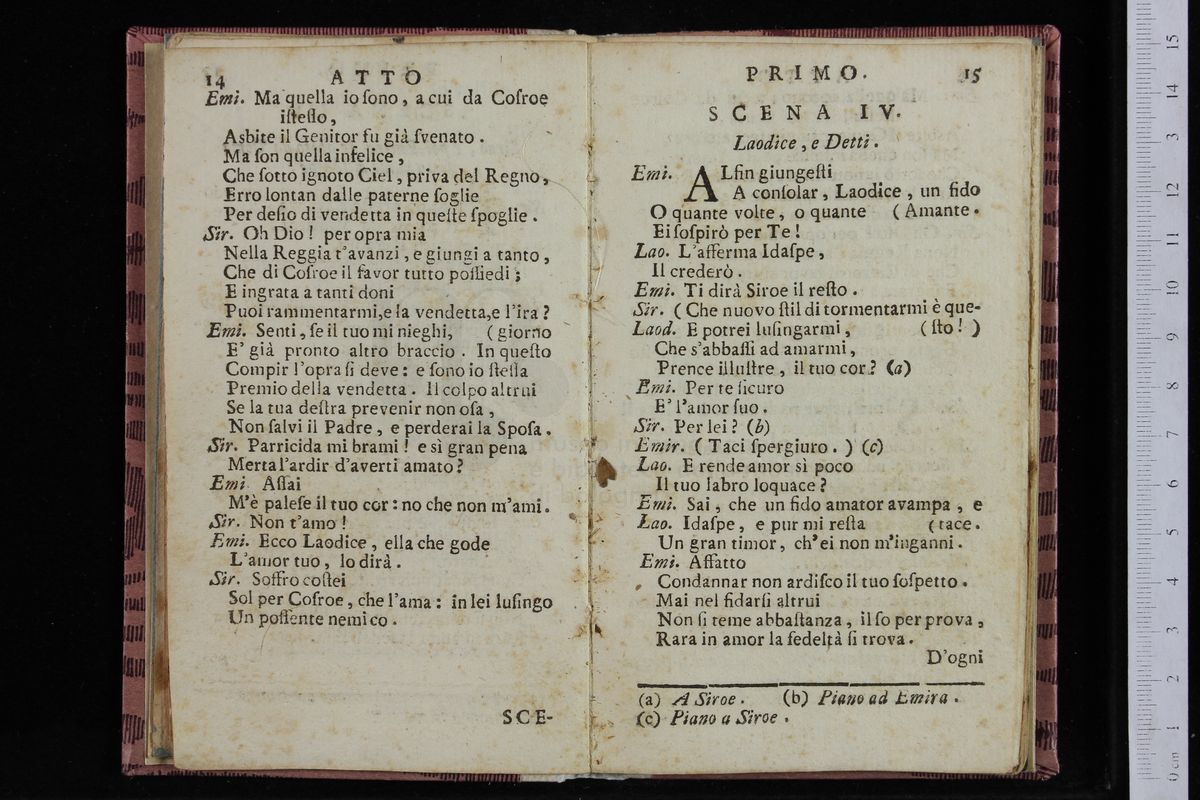 14 ATTO
Emi. Ma quella io ſono, a cui da Coſroe
iſteſſo,
Asbite il Genitor fu già ſvenato.
Ma ſon quella infelice,
Che ſotto ignoto Ciel, priva del Regno,
Erro lontan dalle paterne ſoglie
Per deſio di vendetta in queſte ſpoglie.
Sir. Oh Dio! per opra mia
Nella Reggia t'avanzi, e giungi a tanto,
Che di Coſroe il favor tutto poſſiedi;
E ingrata a tanti doni
Puoi rammentarmi,e la vendetta,e l'ira?
Emi. Senti, ſe il tuo mi nieghi, (giorno
E' già pronto altro braccio. In queſto
Compir l'opra ſi deve: e ſono io ſteſſa
Premio della vendetta. Il colpo altrui
Se la tua deſtra prevenir non oſa,
Non ſalvi il Padre, e perderai la Spoſa.
Sir. Parricida mi brami! e sì gran pena
Merta l'ardir d'averti amato?
Emi. Aſſai
M'è paleſe il tuo cor: no che non m'ami.
Sir. Non t'amo!
Emi. Ecco Laodice, ella che gode
L'amor tuo, lo dirà.
Sir. Soffro coſtei
Sol per Coſroe, che l'ama: in lei luſingo
Un poſſente nemico.
SCE-
PRIMO. 15
SCENA IV.
Laodice, e Detti.
Emi. ALfin giungeſti
A conſolar, Laodice, un fido
O quante volte, o quante (Amante.
Ei ſoſpirò per Te!
Lao. L'afferma Idaſpe,
Il crederò.
Emi. Ti dirà Siroe il reſto.
Sir. (Che nuovo ſtil di tormentarmi è que-
Laod. E potrei luſingarmi, (ſto!)
Che s'abbaſſi ad amarmi,
Prence illuſtre, il tuo cor? (a)
Emi. Per te ſicuro
E' l'amor ſuo.
Sir. Per lei? (b)
Emir. (Taci ſpergiuro.) (c)
Lao. E rende amor sì poco
Il tuo labro loquace?
Emi. Sai, che un fido amator avampa, e
Lao. Idaſpe, e pur mi reſta (tace.
Un gran timor, ch'ei non m'inganni.
Emi. Affatto
Condannar non ardiſco il tuo ſoſpetto.
Mai nel fidarſi altrui
Non ſi teme abbaſtanza, il ſo per prova,
Rara in amor la fedeltà ſi trova.
D'ogni
(a) A Siroe. (b) Piano ad Emira.
(c) Piano a Siroe.
0 cm 1 2 3 4 5 6 7 8 9 10 11 12 13 14 15